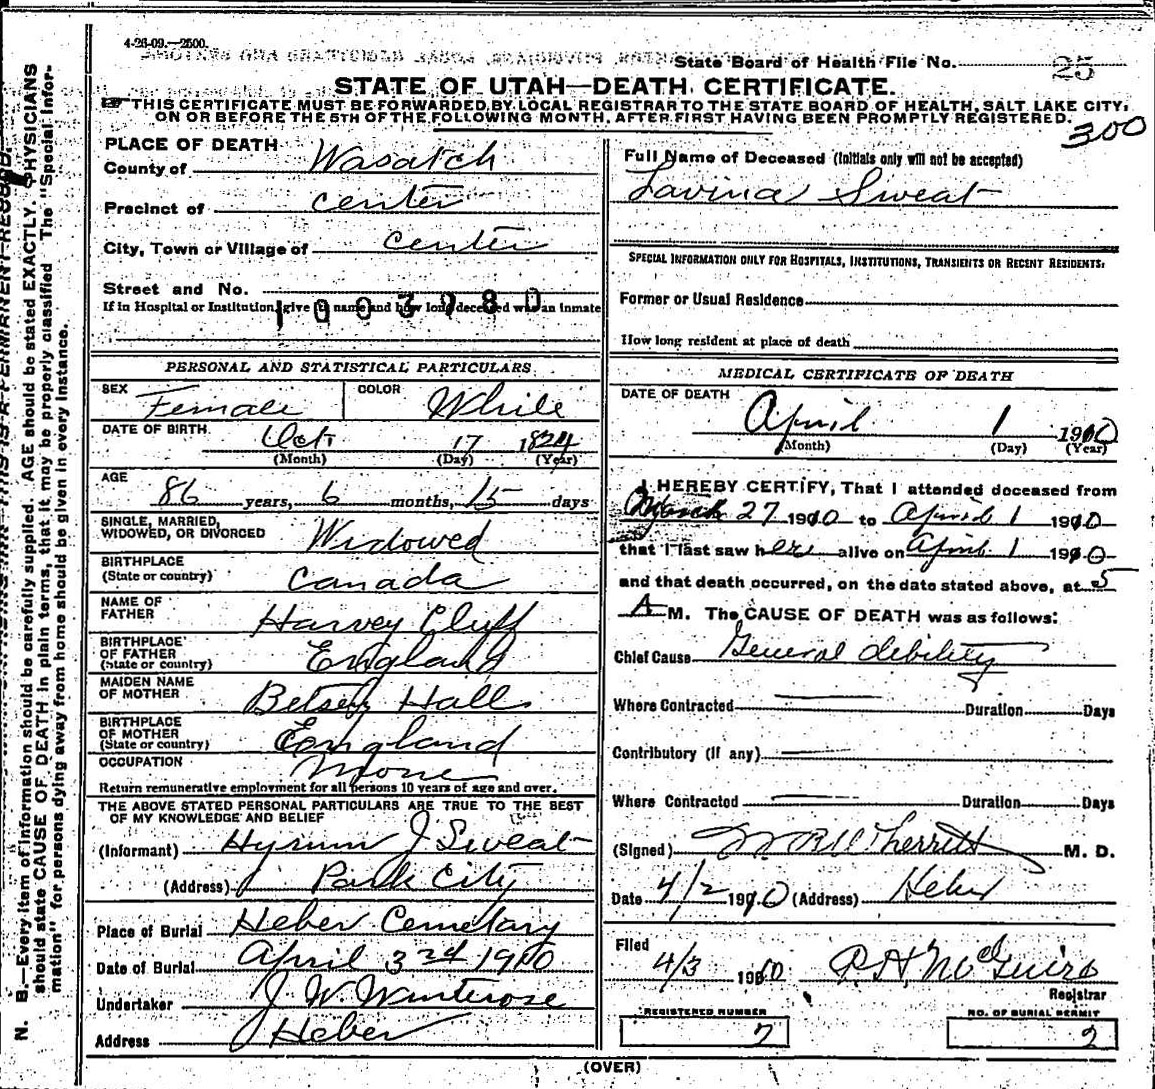 4-26-09.—2500.
State Board of Health File No. 25
STATE OF UTAH—DEATH CERTIFICATE.
THIS CERTIFICATE MUST BE FORWARDED BY LOCAL REGISTRAR TO THE STATE BOARD OF HEALTH, SALT LAKE CITY,
ON OR BEFORE THE 5TH OF THE FOLLOWING MONTH, AFTER FIRST HAVING BEEN PROMPTLY REGISTERED.
300
PLACE OF DEATH
County of Wasatch
Precinct of Center
City, Town or Village of Center
Street and No.
If in Hospital or Institution, give its name and how long deceased was an inmate
1003980
PERSONAL AND STATISTICAL PARTICULARS
SEX Female COLOR White
DATE OF BIRTH. Oct 17 1824
(Month) (Day) (Year)
AGE 86 years, 6 months, 15 days
SINGLE, MARRIED,
WIDOWED, OR DIVORCED Widowed
BIRTHPLACE
(State or country) Canada
NAME OF
FATHER Harvey Cluff
BIRTHPLACE
OF FATHER
(State or country) England
MAIDEN NAME
OF MOTHER Betsey Hall
BIRTHPLACE
OF MOTHER
(State or country) England
OCCUPATION None
Return remunerative employment for all persons 10 years of age and over.
THE ABOVE STATED PERSONAL PARTICULARS ARE TRUE TO THE BEST
OF MY KNOWLEDGE AND BELIEF
(Informant) Hyrum J Sweat
(Address) Park City
Place of Burial Heber Cemetary
Date of Burial April 3rd 1910
Undertaker J. W. Winterose
Address Heber
Full Name of Deceased (Initials only will not be accepted)
Lavina Sweat
SPECIAL INFORMATION ONLY FOR HOSPITALS, INSTITUTIONS, TRANSIENTS OR RECENT RESIDENTS:
Former or Usual Residence
How long resident at place of death
MEDICAL CERTIFICATE OF DEATH
DATE OF DEATH
April 1 1910
(Month) (Day) (Year)
I HEREBY CERTIFY, That I attended deceased from
March 27 1910 to April 1 1910
that I last saw her alive on April 1 1910
and that death occurred, on the date stated above, at 5
A M. The CAUSE OF DEATH was as follows:
Chief Cause General debility
Where Contracted Duration Days
Contributory (if any)
Where Contracted Duration Days
(Signed) Wherritt M. D.
Date 4/2 1910 (Address) Heber
Filed
4/3 1910 R H McGuire
Registrar
REGISTERED NUMBER
7
NO. OF BURIAL PERMIT
2
(OVER)
N. B.—Every item of information should be carefully supplied. AGE should be stated EXACTLY. PHYSICIANS
should state CAUSE OF DEATH in plain terms, that it may be properly classified. The "Special Infor-
mation" for persons dying away from home should be given in every instance.